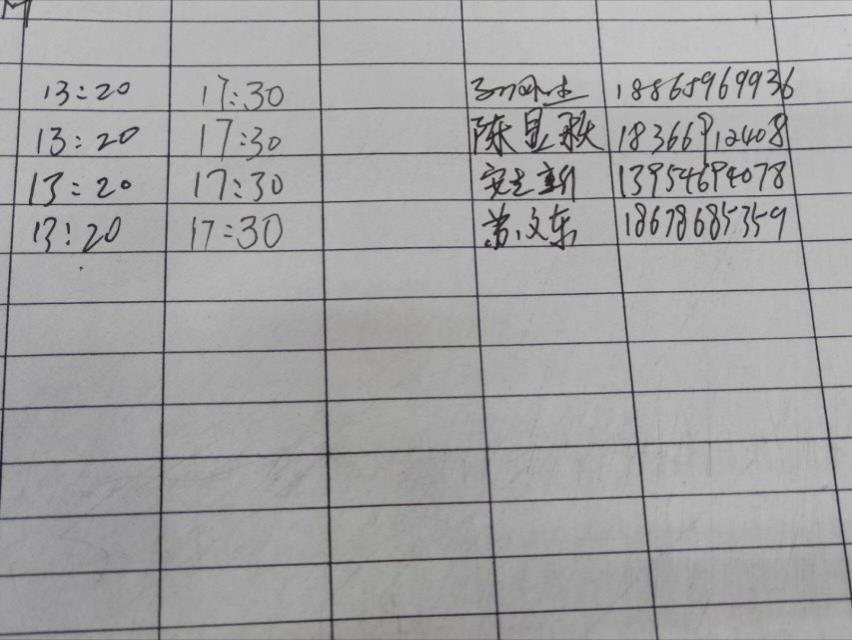 13:20 17:30 18865969936
13:20 17:30 陈显秋 18366912408
13:20 17:30 13954694078
13:20 17:30 苏文东 18678685359